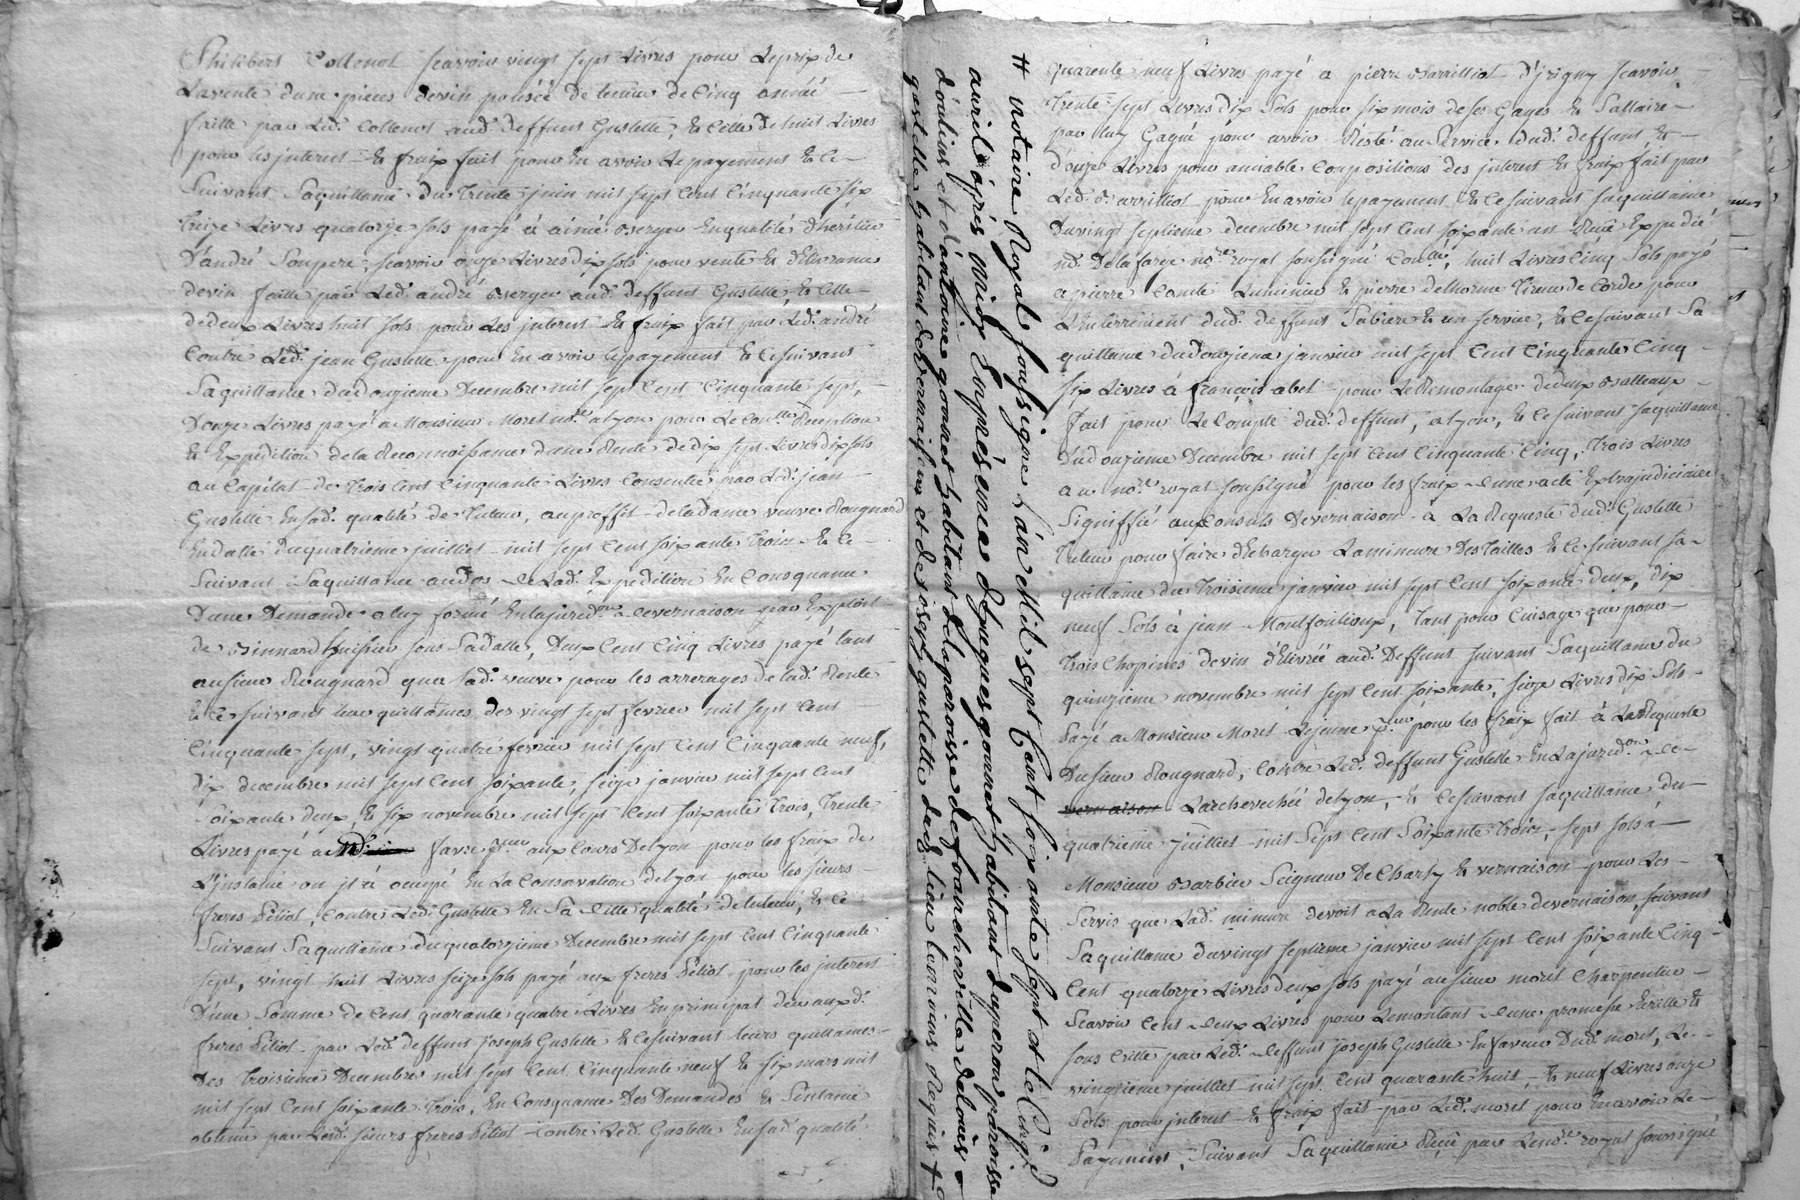 Philibert Collenot scavoir vingt sept Livres pour Leprix de
Lavente dune pieces devin poussée De tenüe de Cinq année
faitte par Led. Collenot aud. deffunt Gustette, & Celle De huit Livres
pour les jnterest & fraix fait pour En avoir Le payement & Ce
Suivant Saquittance du Trente juin mil sept Cent Cinquante six
treize Livres quatorze sols payé à aimé Berger Enqualité dheritier
D'andré Son pere, scavoir onze Livres dix sols pour vente & Délivrance
devin faitte par Led. andré Berger aud. deffunt Gustette, & Celle
dedeux Livres huit sols pour Les jnterest & fraix fait par Led. andré
Contre Led. jean Gustette pour En avoir Lepayement & Cesuivant
Saquittance dudouzieme Decembre mil sept Cent Cinquante sept,
Douze Livres payé a Monsieur Moret no.re alyon pour Le Con.lle Reception
& Expedition dela Reconnoissance dune Rente de dix sept Livres dix sols
au Capital de trois Cent Cinquante Livres Consentie par Led. jean
Gustette Ensad. qualité de Tuteur, auproffit deladame veuve Rougnard
Endatte duquatrieme juilliet mil sept Cent soixante Trois & Ce
Suivant Saquittance audos de Lad. Expedition En Consquance
Dune Demande aluy formé Enlajurid.on devernaison par Exploit
de Binnard huissier sous Sadatte, Deux Cent Cinq Livres payé tant
ausieur Rougnard qua lad. veuve pour les arrerages de lad. Rente
& Ce suivant leur quittances des vingt sept fevrier mil sept Cent
Cinquante sept, vingt quatre fevrier mil sept Cent Cinquante neuf,
dix decembre mil sept Cent soixante, seize janvier mil sept Cent
Soixante deux, & six novembre mil sept Cent soixante Trois, Trente
Livres payé a favre p.reur aux Cours Delyon pour les fraix de
L'jnstance ou jl a ocupé En La Conservation delyon pour les sieurs
freres Petiot, Contre Led. Gustette En Sa ditte qualité detuteur, & Ce
Suivant Saquittance duquatorzieme Decembre mil sept Cent Cinquante
sept, vingt huit Livres seize sols payé aux freres Petiot pour les jnterest
D'une Somme de Cent quarante quatre Livres Enprincipal deu auxd.
freres Petiot par Led. deffunt joseph Gustette & Cesuivant leurs quittances
Des troisieme Decembre mil sept Cent Cinquante neuf & six mars mil
mil sept Cent soixante Trois, En Consquance Des Demandes & Sentance
obtenu par Lesd. sieurs freres Petiot Contre Led. Gustette Ensad. qualité
# notaire Royal soussigné L'an Mil sept Cent soixante sept et le Cinq
avril après midy En présence de hugues gonnet habitant duperon paroisse
d'oulins et d'antoine gonnet habitant de la paroisse de francheville
gustette habitant de vernaison et de joseph gustette dud. lieu temoins Requis
quarente neuf Livres payé a pierre Barrilliot D'jrigny scavoir
Trente sept Livres dix Sols pour six mois de ses Gages & Sallaire
par luy Gagné pour avoir Resté au Service dud. deffunt &
d'onze Livres pour amiable Composition des jnterest & fraix fait par
Led. Barrilliot pour En avoir lepayement & Cesuivant saquittance
Duvingt septieme decembre mil sept Cent soixante un Recu Expedié
M.e Delaforge no.re royal soussigné, huit Livres Cinq sols payé
a pierre Comte Luminier & pierre delhorme tireur de Corde pour
L'Enterrement dud. deffunt & un service, & Cesuivant Sa
quittance dudouzieme janvier mil sept Cent Cinquante Cinq
six Livres à francois abel pour Le Remontage dedeux Batteaux
fait pour Le Compte dud. deffunt, alyon, & Cesuivant saquittance
Dudouzieme Decembre mil sept Cent Cinquante Cinq, trois Livres
au no.re royal soussigné pour les fraix dune acte Extrajudiciaire
Signiffié aux Consuls Devernaison à La Requeste dud. Gustette
Tuteur pour faire Décharger Lamineure Des tailles & Cesuivant sa
quittance du Troisieme janvier mil sept Cent soixante deux, dix
neuf Sols à jean Montfouilloux, tant pour Cuisage que pour
trois Chopines de vin Délivrée aud. Deffunt suivant Saquittance du
quinzieme novembre mil sept Cent soixante, seize Livres dix Sols
Payé a Monsieur Moret Lejeune p.reur pour les fraix fait à LaRequeste
Du sieur Rougnard, Contre Led. deffunt Gustette En Lajurid.on de
vernaison Larchevechée delyon, & Cesuivant saquittance du
quatrieme juilliet mil Sept Cent Soixante Trois, sept sols à
Monsieur Barbier Seigneur De Charly & vernaison pour Les
Servis que Lad. mineure devoit a La Rente noble devernaison, suivant
Saquittance duvingt septieme janvier mil sept Cent soixante Cinq
Cent quatorze Livres deux sols payé au sieur moret Charpentier
Scavoir Cent deux Livres pour Lemontant dune promesse Ecritte &
sous Critte par Led. deffunt joseph Gustette Enfaveur Dud. moret, Le
vingtieme juilliet mil sept Cent quarante huit & neuf Livres onze
Sols pour jnterest & fraix fait par Led. moret pour En avoir Le
Payement, Suivant Saquittance Recüe par Lenot.re royal soussigné